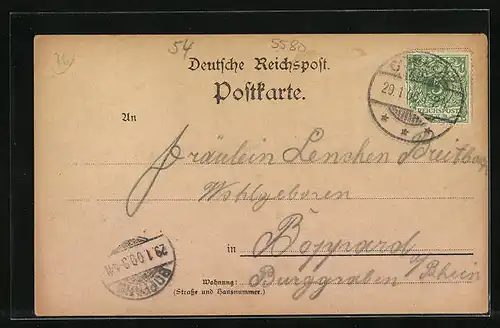 54 5580
Deutsche Reichspost.
Postkarte.
REICHSPOST
29.1.00
An
Fräulein Lenchen
Wohlgeboren
in Boppard a/Rhein
Wohnung: Burggraben
(Straße und Hausnummer.)
29.1.00